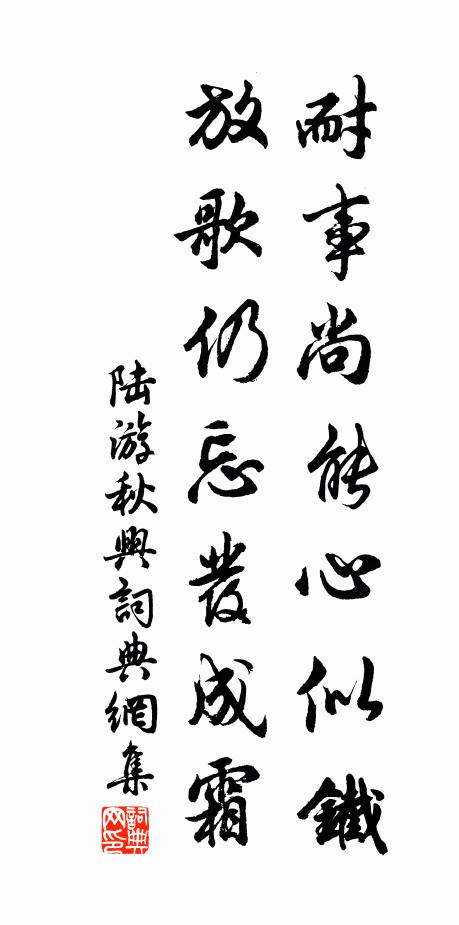 耐事尚能心似鐵
放歌仍忘發成霜
陆游秋興詞典網集
詞典网印